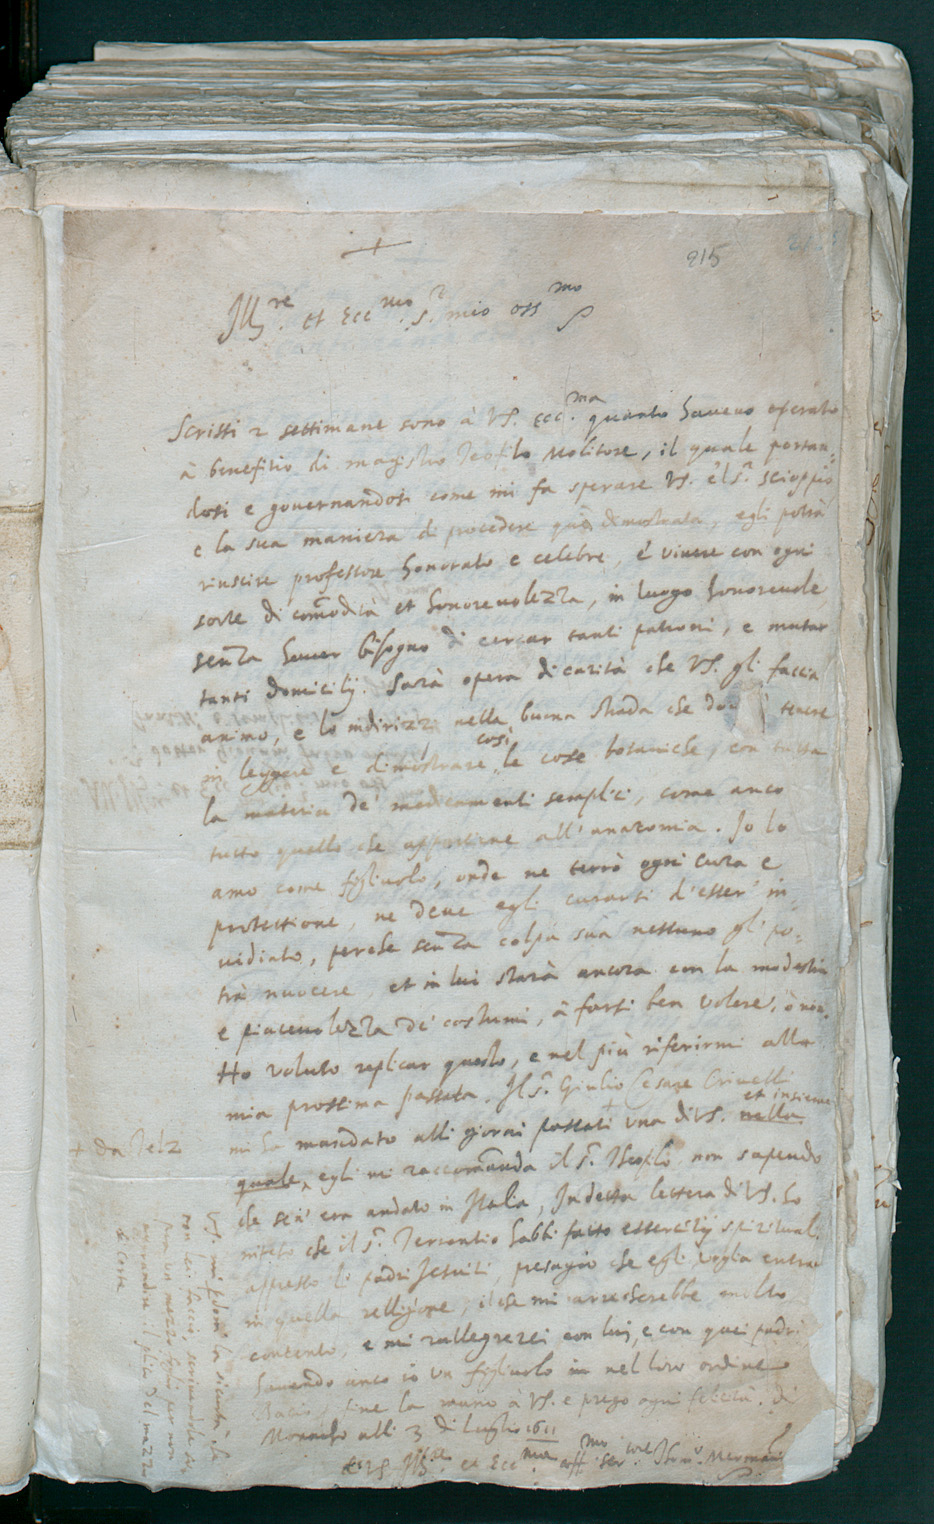 215
Ill.re et Ecc.mo S.r mio oss.mo
Scrissi 2 settimane sono à VS. Ecc.ma quanto haueuo operato
à benefitio di magistro Teofilo Molitore, il quale portan-
dosi e gouernandosi come mi fa sperare VS. e'l S.r Scioppio
e la sua maniera di procedere quà dimostrata, egli potrà
riuscire professore honorato e celebre, è viuere con ogni
sorte di comodità et honoreuolezza, in luogo honoreuole,
senza hauer bisogno di cercar tanti patroni, e mutar
tanti domicilij. Sarà opera di carità che VS. gli faccia
animo, e lo indirizzi nella buona strada che tenere
in leggere e dimostrare così le cose botaniche, con tutta
la materia de' medicamenti semplici, come anco
tutto quello che appartiene all'anatomia. Io lo
amo come figliuolo, onde ne terrò ogni cura e
protettione, ne deue egli curarsi d'esser' in-
uidiato, perche senza colpa sua nessuno gli po-
trà nuocere, et in lui starà ancora con la modestia
e piaceuolezza de' costumi, à farsi ben volere, ò non.
Ho voluto replicar questo, e nel più riferirmi alla
mia prossima passata. Il S.r Giulio Cesare Criuelli
mi ha mandato alli giorni passati una di VS. nella et insieme
quale egli mi raccomanda il S.r non sapendo
che sen' era andato in Italia, In detta lettera di VS. ho
inteso che il S.r Terentio habbi fatto essercitij spirituali
appresso li padri Jesuiti, presagio che egli voglia entrar
in quella relligione, il che mi arrecherebbe molto
contento, e mi rallegrerei con lui, e con quei padri
hauendo anco io un figliuolo in nel loro ordine
Bacio fine la mano à VS. e prego ogni felicità. di
Monacho alli 3 di Luglio 1611
Di VS. Ill.re et Ecc.ma aff.mo ser.
+ da Telz
VS. mi perdoni la sicurtà che
non lo faccio, scriuendole
un mezzo foglio per non
il plico del mezzo
di Corte